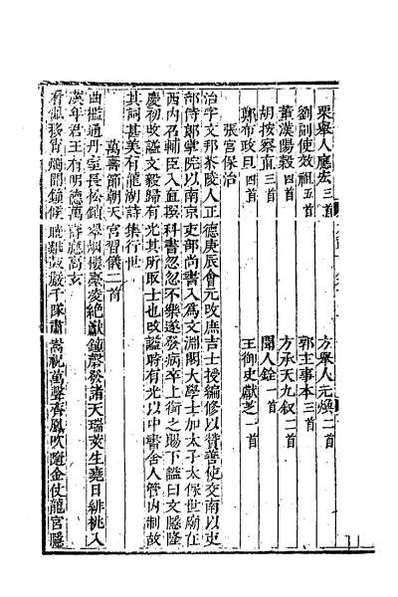 栗舉人應宏三首 方舉人元煥二首
劉副使效祖五首 郭主事本三首
董漢陽穀四首 方承天九叙二首
胡按察直三首 聞人銓一首
鄭布政旦四首 王御史獻芝一首
張宮保治
治字文邦茶陵人正德庚辰會元改庶吉士授編修以贊善使交南以吏
部侍郎掌院以南京吏部尚書入爲文淵閣大學士加太子太保世廟在
西内召輔臣入直撰科書忽忽不樂遂發病卒上銜之賜下謚曰文隱隆
慶初改謚文毅歸有光其所取士也改謚時有光以中書舍人管内制故
其詞甚美有龍湖詩集行世
萬壽節朝天宮習儀二首
曲檻通丹室長松鎖翠烟樓臺凌絶巘鐘磬發諸天瑞莢生堯日緋桃入
漢年君王有明德萬壽應高玄
看佩移宵燭聞鐘候曉雞嚴千隊肅嵩祝萬聲齊鳳吹隨金仗龍宮隱